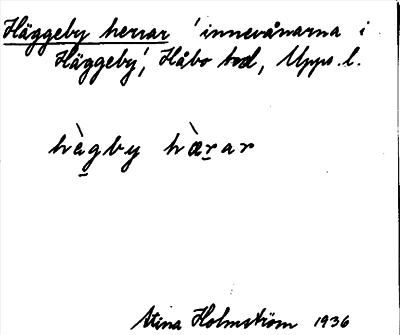 Häggeby herrar 'innevånarna i
Häggeby', Håbo hd, Upps. l.
hàgby hàrar
Stina Holmström 1936